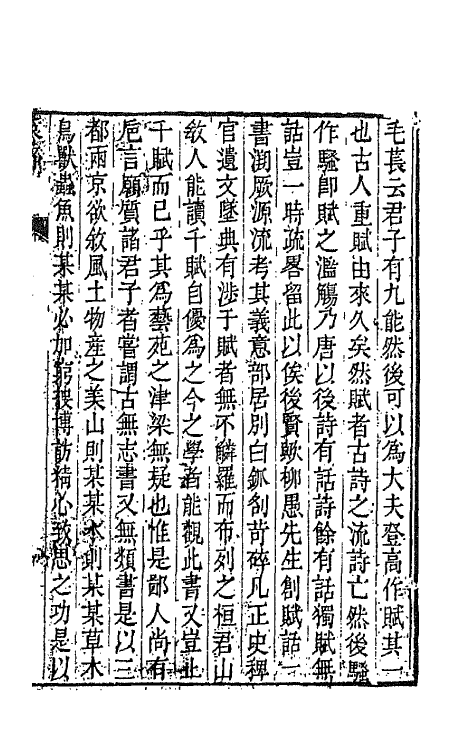 毛長云君子有九能然後可以為大夫登高作賦其一
也古人重賦由來久矣然賦者古詩之流詩亡然後騷
作騷即賦之濫觴乃唐以後詩有話詩餘有話獨賦無
話豈一時疏畧留此以俟後賢歟柳愚先生創賦話一
書溯厥源流考其義意部居別白鈲刉苛碎凡正史稗
官遺文墜典有涉于賦者無不鱗羅而布列之桓君山
敎人能讀千賦自優為之今之學者能觀此書又豈止
千賦而已乎其為藝苑之津梁無疑也惟是鄙人尚有
巵言願質諸君子者嘗謂古無志書又無類書是以三
都兩京欲敘風土物產之美山則某某水則某某草木
鳥獸蟲魚則某某必加窮搜博訪精心致思之功是以